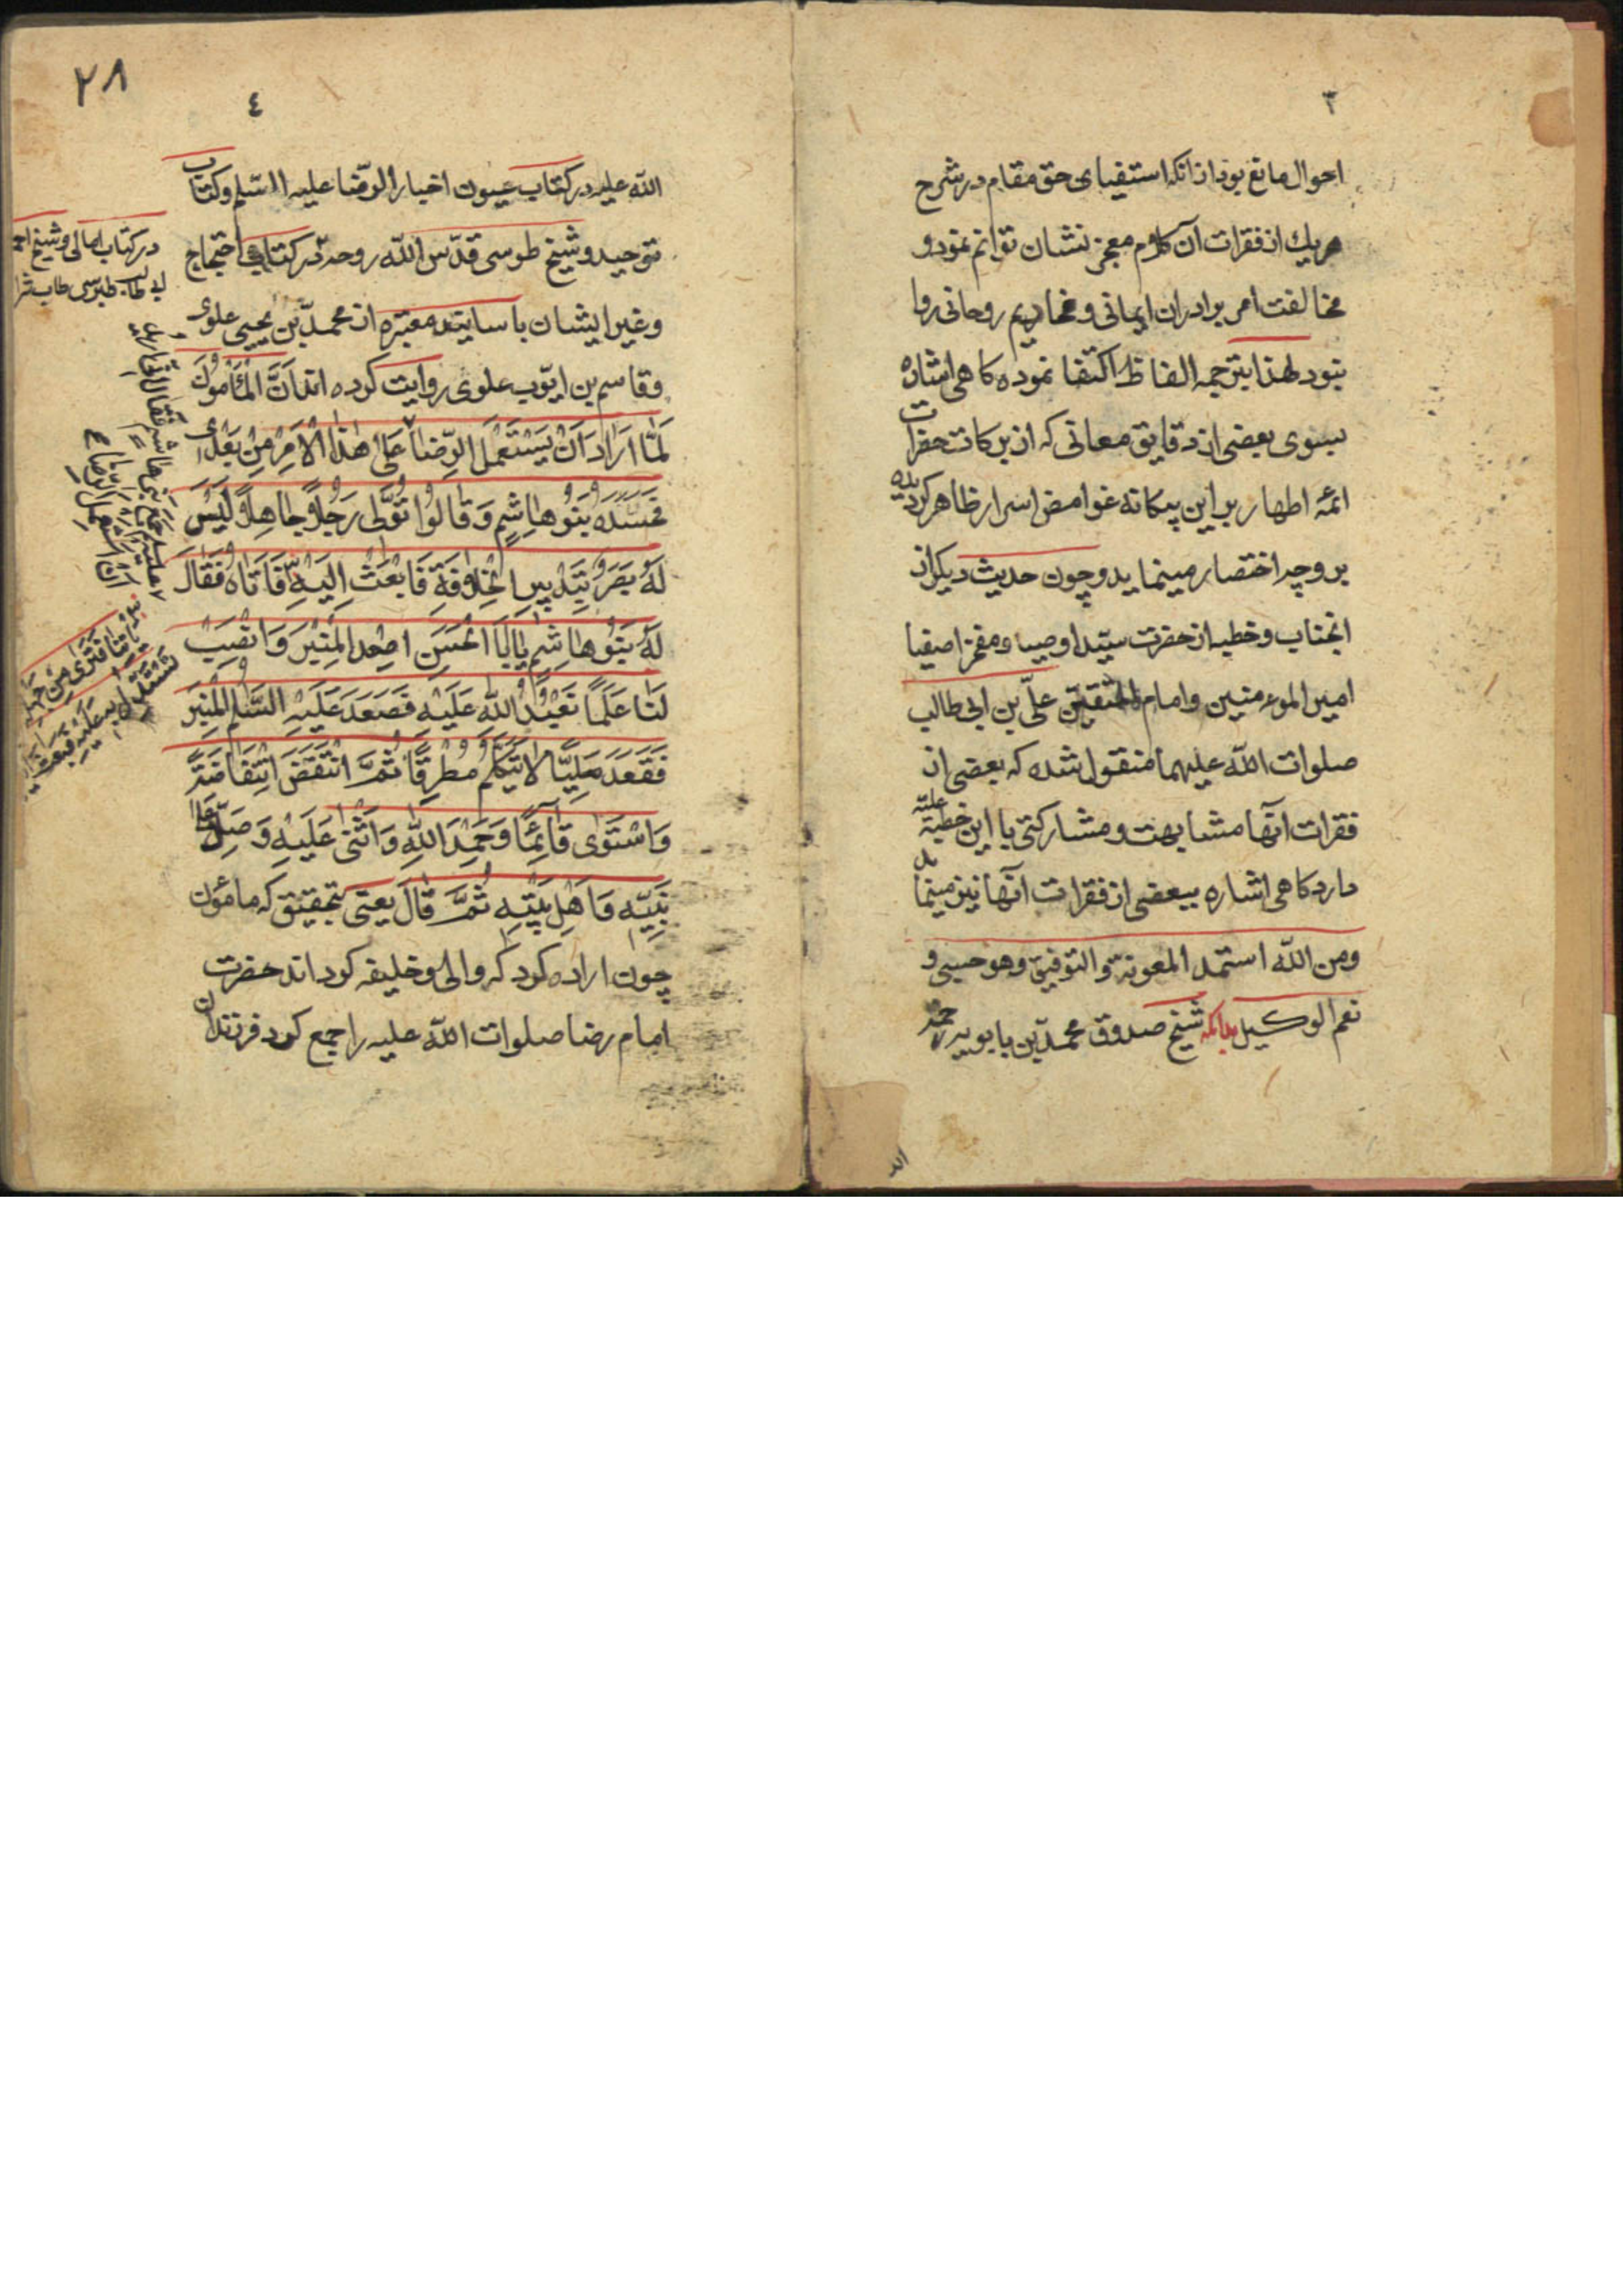 ٣
احوال مانع بود از آنکه استیفای حق مقام در شرح
هریك از فقرات آن کلام معجز نشان توانم نمود و
مخالفت امر برادران ایمانی و مخادیم روحانی روا
نبود لهذا بترجمه الفاظ اکتفا نموده کاهی اشاره
بسوی بعضی از دقایق معانی که از برکات حضرات
ائمه اطهار بر این بیکانه غوامض اسرار ظاهر کردیده
بر وجه اختصار مینماید و چون حدیث دیکر از
انجناب و خطبه از حضرت سید اوصیا و مفخر اصفیا
امیر المؤمنین و امام المتقین علی بن ابی طالب
صلوات الله علیهما منقول شده که بعضی از
فقرات آنها مشابهت و مشارکتی با این خطبه علیه
دارد کاهی اشاره ببعضی از فقرات آنها نیز مینماید
ومن الله استمد المعونة والتوفیق وهو حسبی و
نعم الوکیل بدانکه شیخ صدوق محمد بن بابویه رحمة
الله
٢٨
٤
الله علیه در کتاب عیون اخبار الرضا علیه السلم و کتاب
توحید و شیخ طوسی قدس الله روحه در کتاب احتجاج
در کتاب امالی و شیخ احمد
ابی طالب طبرسی طاب ثراه
وغیر ایشان باسانید معتبره از محمد بن یحیی علوی
وقاسم بن ایوب علوی روایت کرده اند اَنَّ الْمَأمُونَ
لَمّا اَرَادَ اَنْ یَسْتَعْمِلَ الرِّضَا عَلیٰ هٰذَا الْاَمْرِ مِنْ بَعْدِی
فَحَسَدَهُ بَنُو هَاشِمٍ وَقَالُوا تُوَلّی رَجُلًا جَاهِلًا لَیْسَ
لَهُ بَصَرٌ بِتَدْبِیرِ الْخِلَافَةِ فَابْعَثْ اِلَیْهِ فَاَتَاهُ فَقَالَ
لَهُ بَنُو هَاشِمٍ یَا اَبَا الْحَسَنِ اصْعَدِ الْمِنْبَرَ وَانْصِبْ
لَنَا عَلَمًا نَعْبُدُ اللهَ عَلَیْهِ فَصَعَدَ عَلَیْهِ السَّلَمُ الْمِنْبَرَ
فَقَعَدَ مَلِیًّا لَا یَتَکَلَّمُ مُطْرِقًا ثُمَّ انْتَفَضَ انْتِفَاضَةً
وَاسْتَوٰی قَائِمًا وَحَمِدَ اللهَ وَاَثْنیٰ عَلَیْهِ وَصَلّیٰ عَلیٰ
نَبِیِّهِ وَاَهْلِ بَیْتِهِ ثُمَّ قَالَ یعنی بتحقیق که مأمون
چون اراده کرد که والی و خلیفه کرداند حضرت
امام رضا صلوات الله علیه را جمع کرد فرزندان